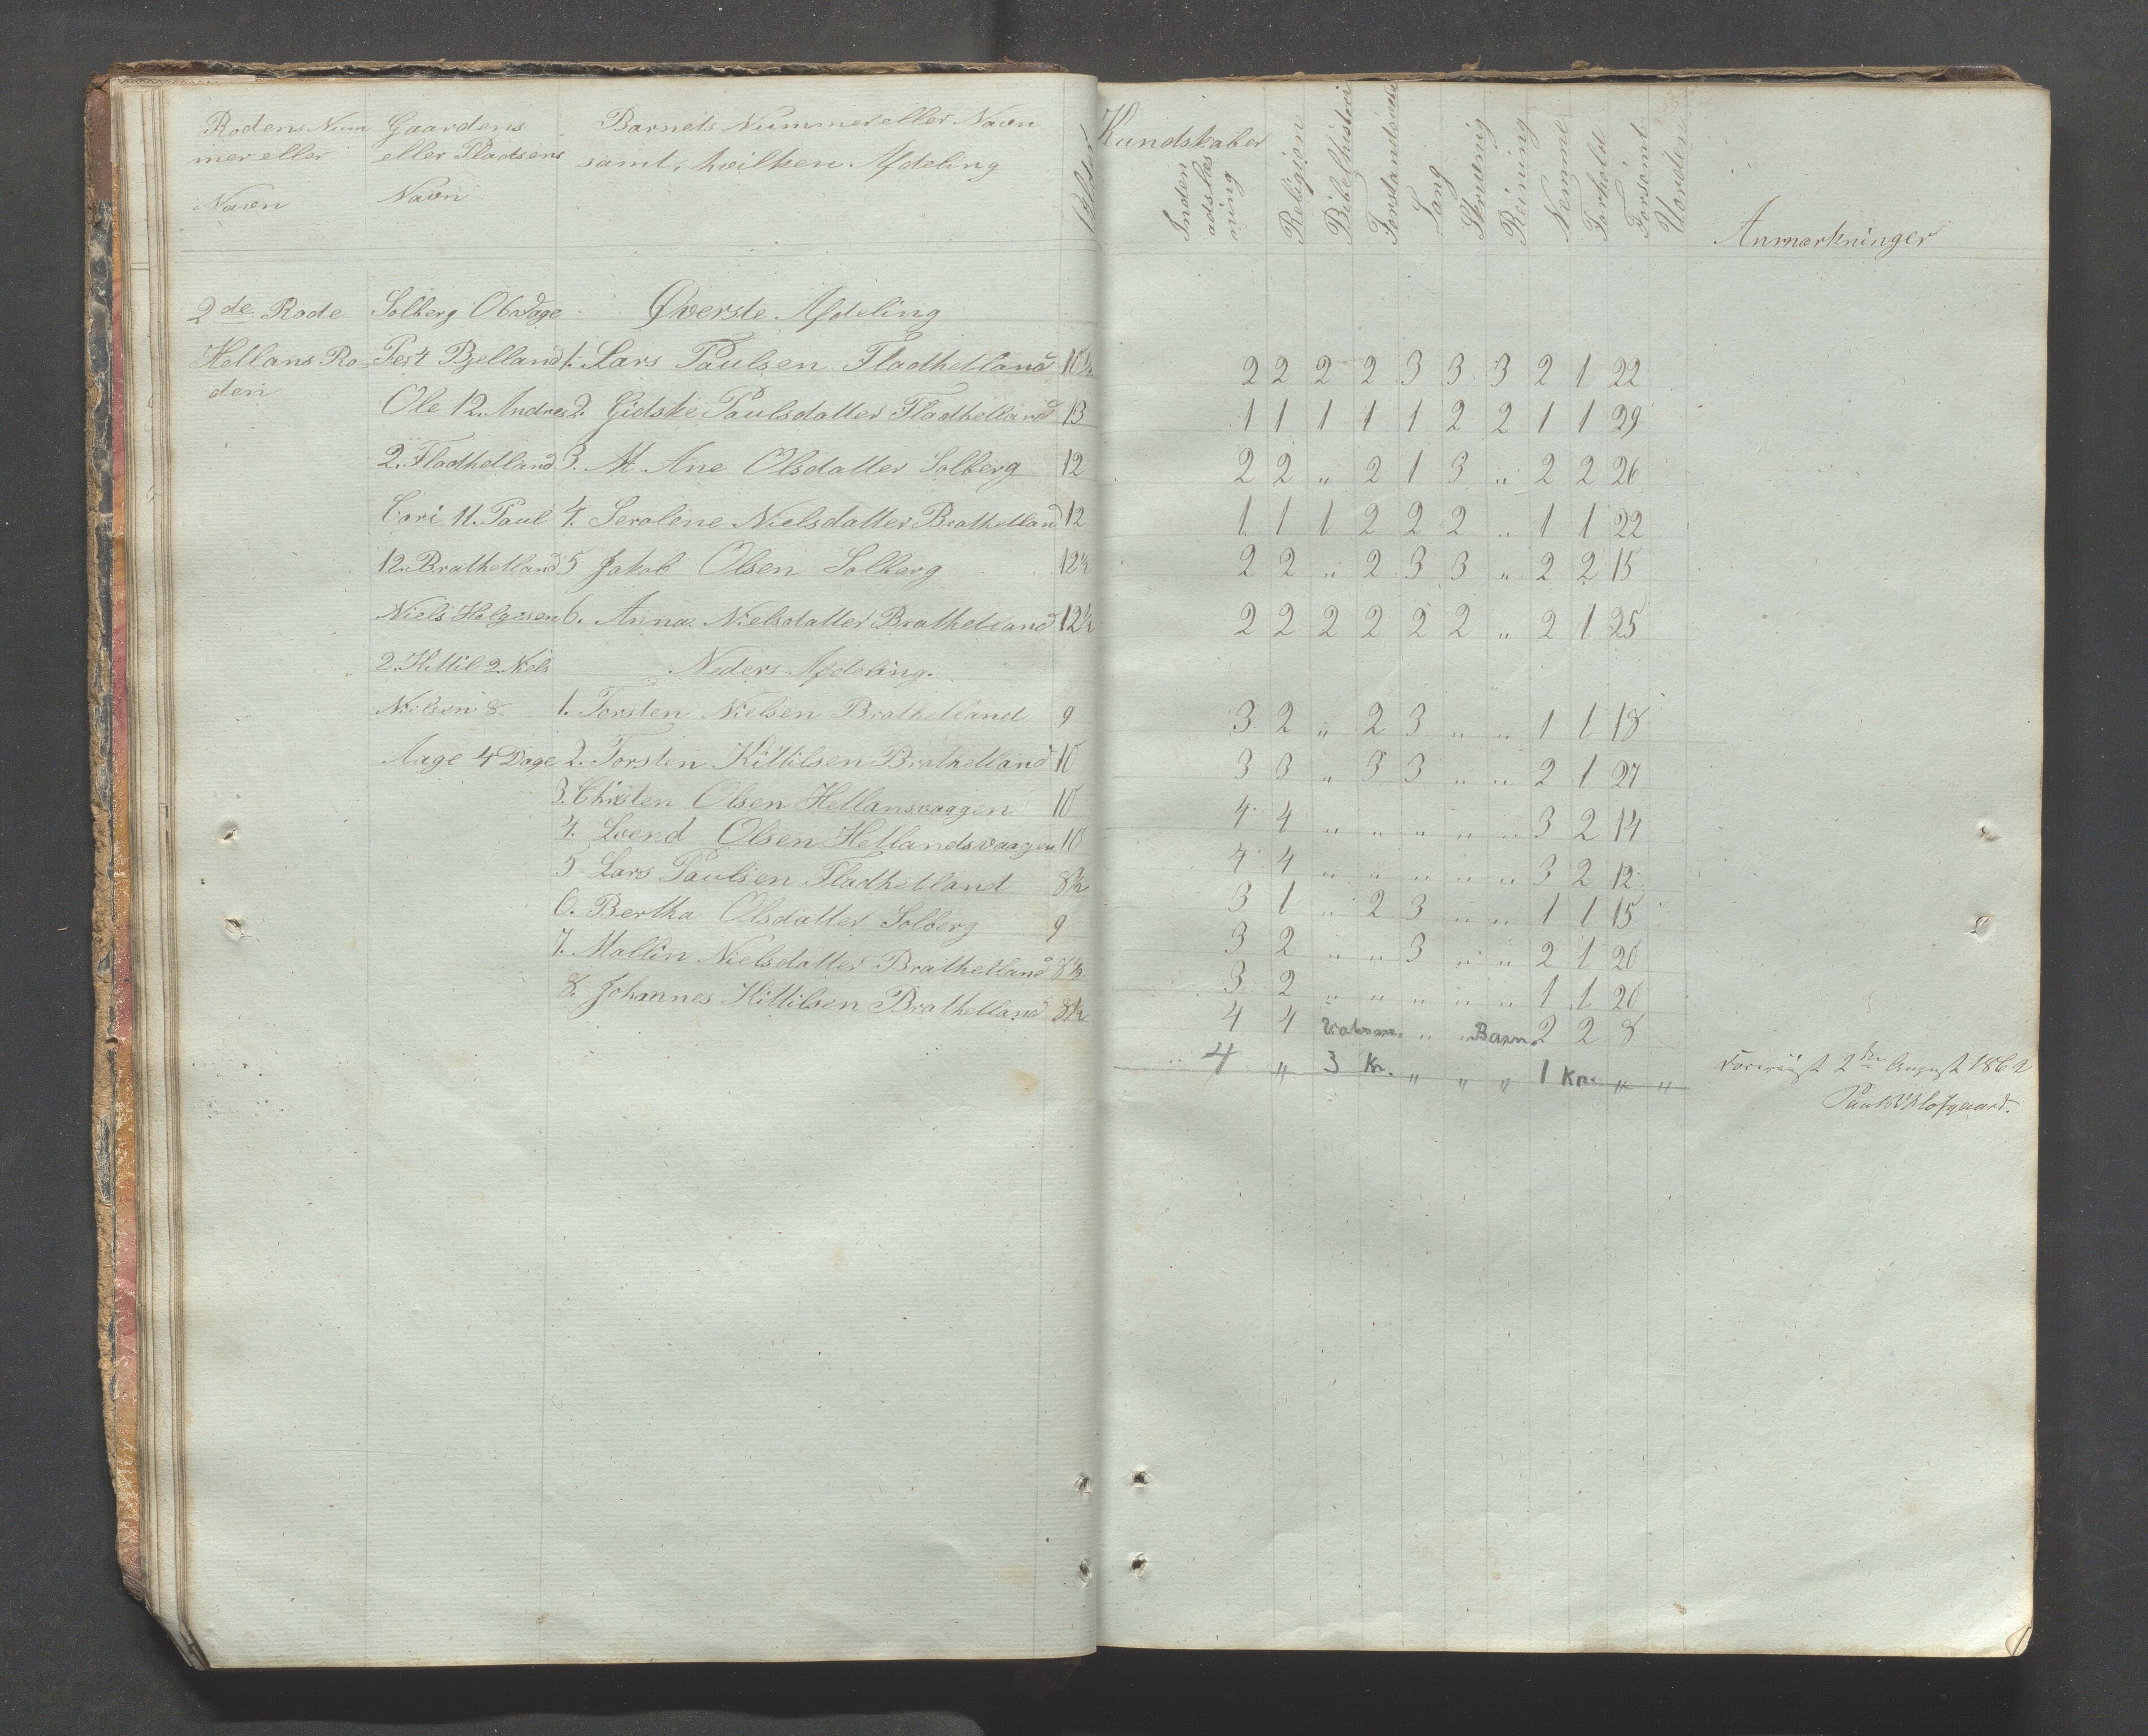 Rodens Num
mer eller
Navn
Gaardens
eller Pladsens
Navn
Barnets Nummer eller Navn
samt, hvilken Afdeling
Alder
Kundskaber
Inden
adslæs
ning
Religion
Bibelhistori
Forstandsøvelse
Sang
Skrivning
Rening
Nemme
Forhold
Forsømt
Uorden
Anmærkninger
2de Rode Solberg Øverste Afdeling
Hellans Ro- Bjelland 1. Lars Paulsen Fladhelland 10½ 2 2 2 2 3 3 3 2 1 22
den
Ole 12. Andres 2. Gidske Paulsdatter Fladhelland 13 1 1 1 1 1 2 2 1 1 29
2. Fladhelland 3. M. Ane Olsdatter Solberg 12 2 2 „ 2 1 3 „ 2 2 26
11. Paul 4. Seraline Nielsdatter Brathelland 12 1 1 1 2 2 2 „ 1 1 22
12. Brathelland 5 Jakob Olsen Solberg 12½ 2 2 „ 2 3 3 „ 2 2 15
Niels Helgesen 6. Anna Nielsdatter Brathelland 12½ 2 2 2 2 2 2 „ 2 1 25
2. Kittil 2. Niels Neders Afdeling.
Nilsen 8 1. Torsten Nielsen Brathelland 9 3 2 „ 2 3 „ „ 1 1 18
Aage 4 Dage 2. Torsten Kittilsen Brathelland 10 3 3 „ 3 3 „ „ 2 1 27
3. Christen Olsen Hellansvaagen 10 4 4 „ „ „ „ „ 3 2 14
4. Svend Olsen Hellandsvaagen 10 4 4 „ „ „ „ „ 3 2 12
5 Lars Paulsen Fladhelland 8½ 3 1 „ 2 3 „ „ 1 1 15
6. Bertha Olsdatter Solberg 9 3 2 „ „ 3 „ „ 2 1 20
7. Mallin Nielsdatter Brathelland 8½ 3 2 „ „ „ „ „ 1 1 20
8. Johannes Kittilsen Brathelland 8½ 4 4 „ „ Barn. 2 2 8
4 „ 3 Kr. „ „ „ 1 Kr. „ „
2den August 1862